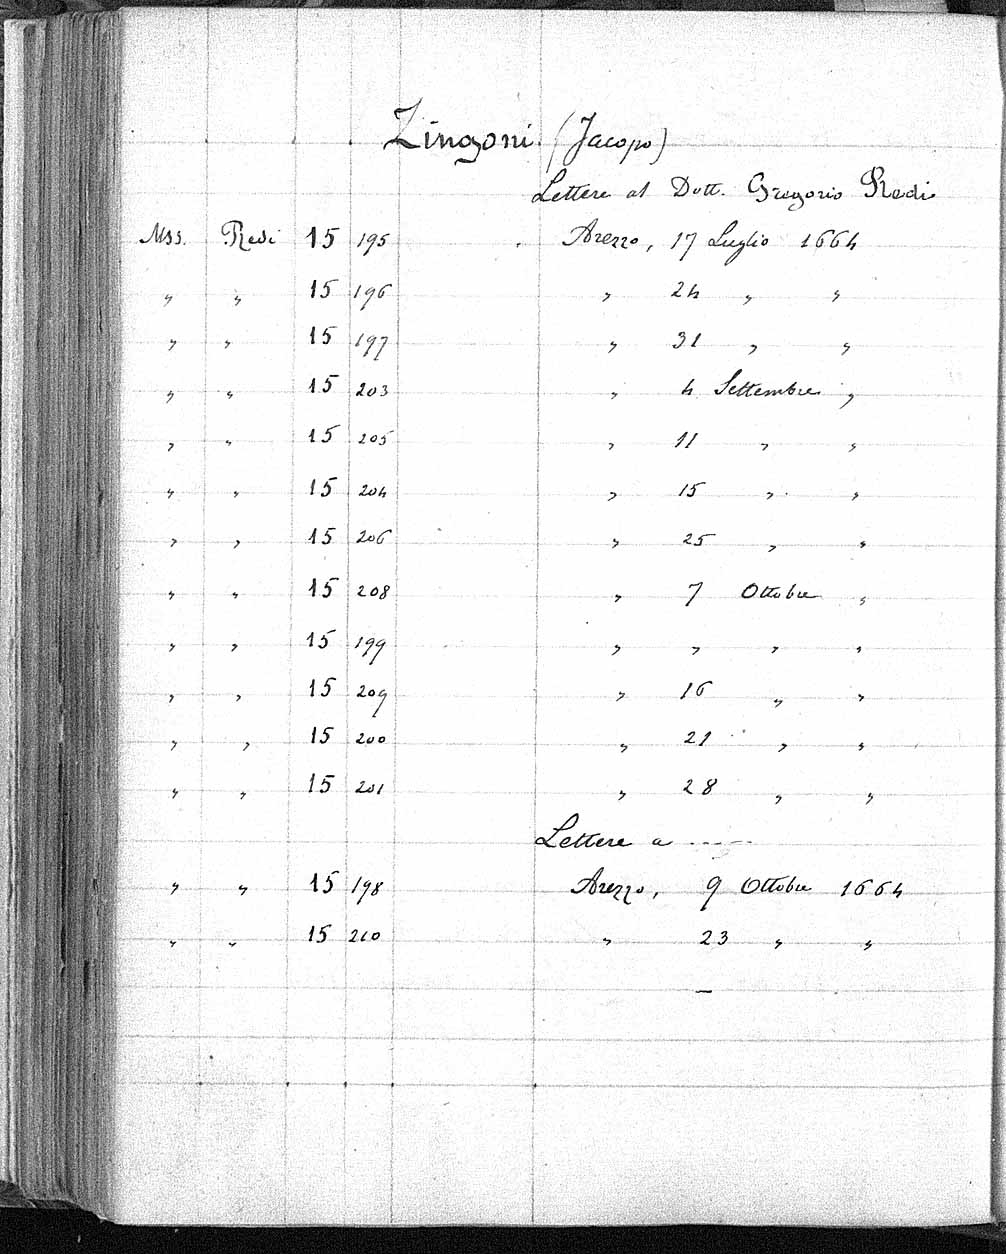 Zingoni (Jacopo)
Lettere al Dott. Gregorio Redi
Mss. Redi 15 195 Arezzo, 17 Luglio 1664
" " 15 196 " 24 " "
" " 15 197 " 31 " "
" " 15 203 " 4 Settembre "
" " 15 205 " 11 " "
" " 15 204 " 15 " "
" " 15 206 " 25 " "
" " 15 208 " 7 Ottobre "
" " 15 199 " " " "
" " 15 209 " 16 " "
" " 15 200 " 21 " "
" " 15 201 " 28 " "
Lettere a -----
" " 15 198 Arezzo, 9 Ottobre 1664
" " 15 210 " 23 " "
—